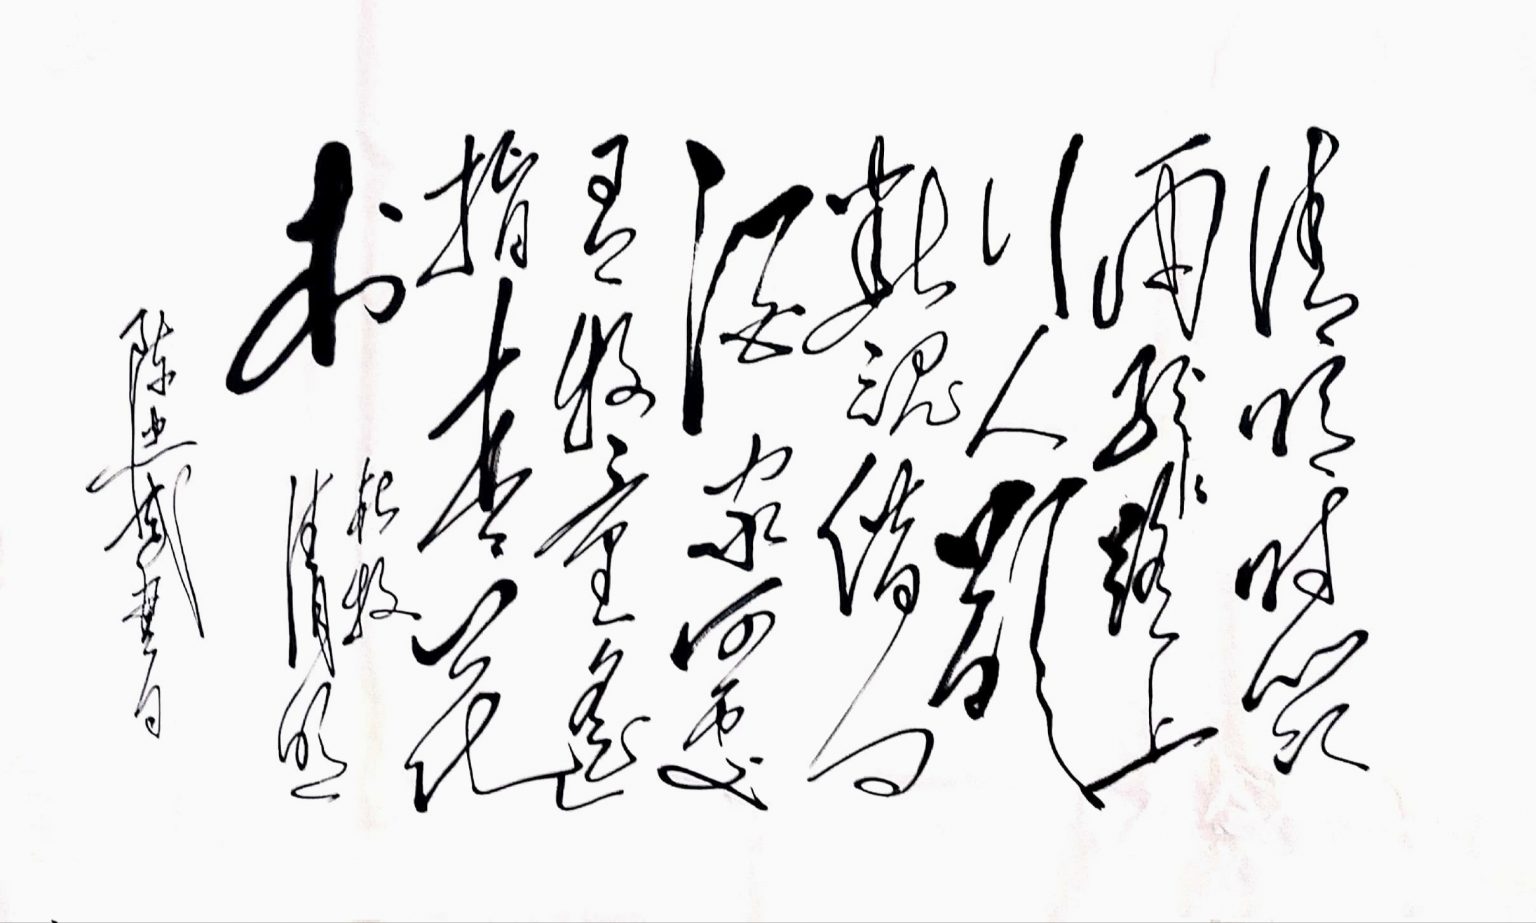 清明时節
雨纷纷路上
行人欲
断魂借问
酒家何处
有牧童遥
指杏花
村
杜牧
清明
陈忠武書